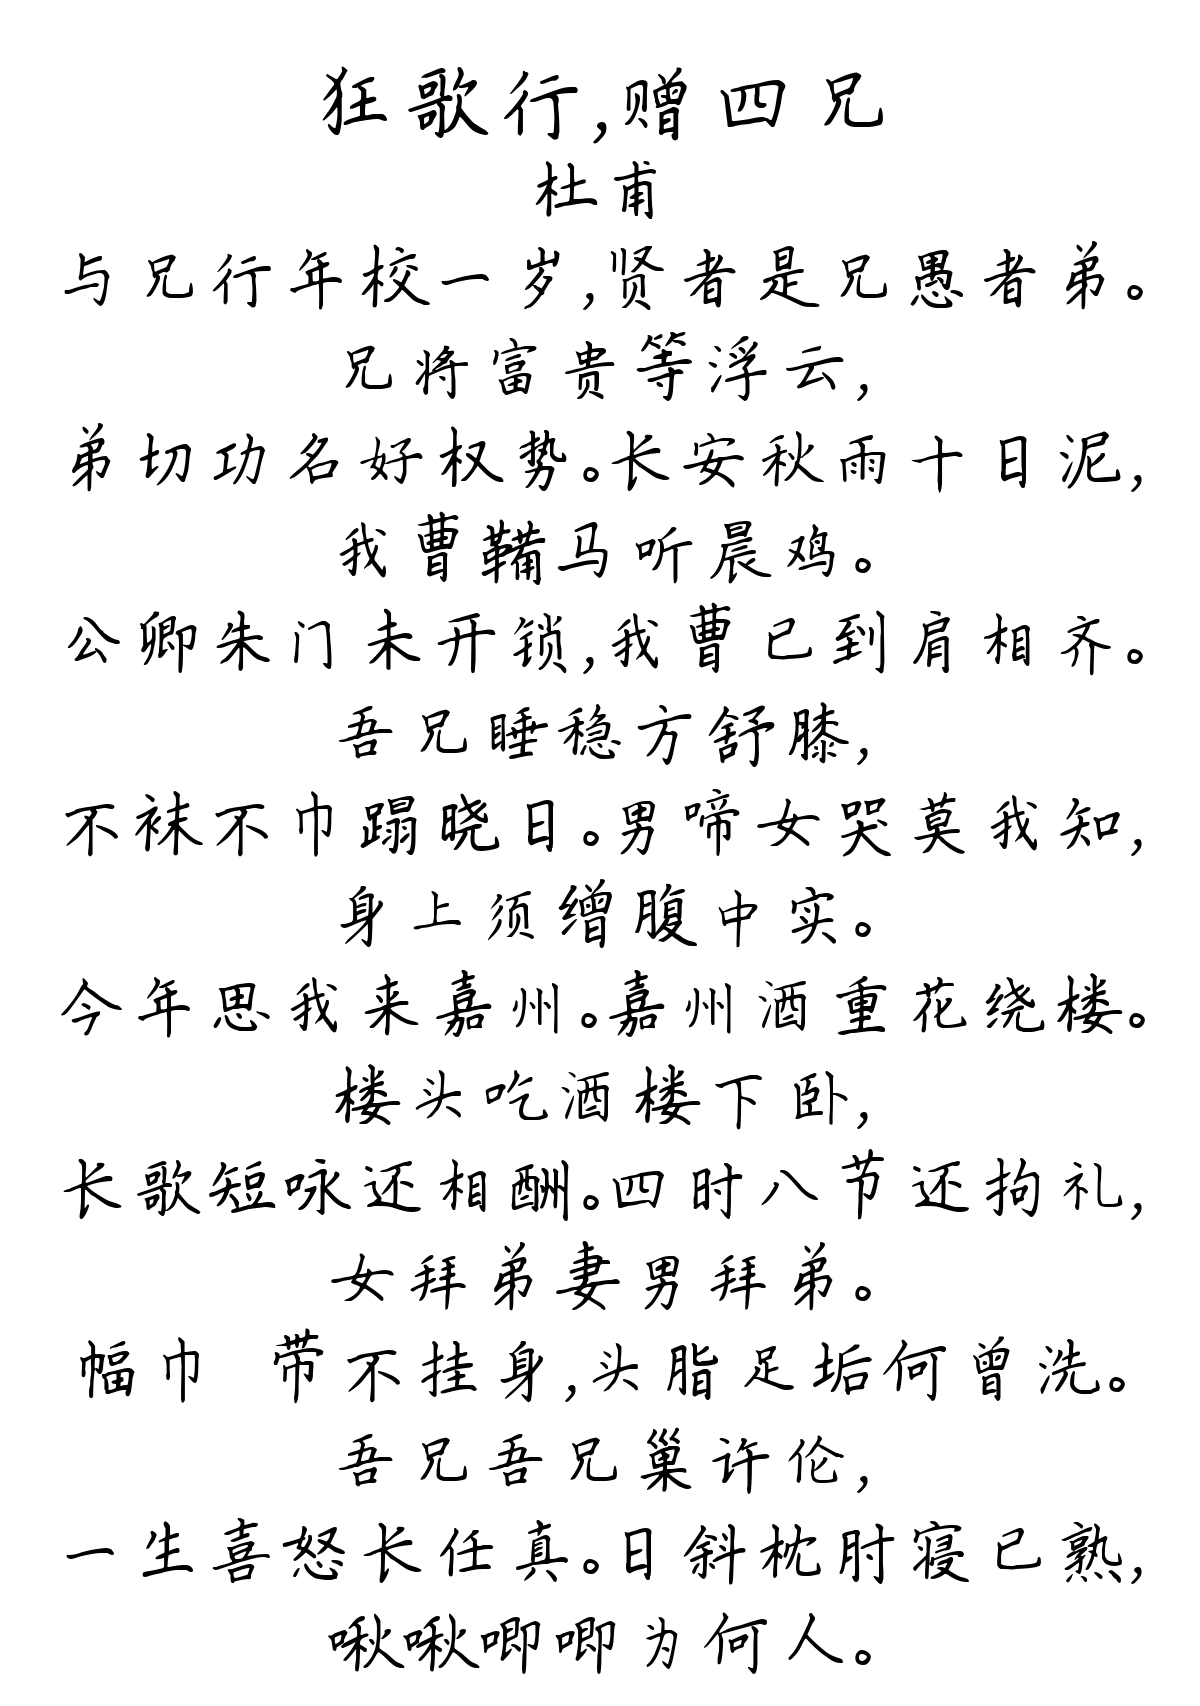 狂歌行,赠四兄
杜甫
与兄行年校一岁,贤者是兄愚者弟。
兄将富贵等浮云,
弟切功名好权势。长安秋雨十日泥,
我曹鞴马听晨鸡。
公卿朱门未开锁,我曹已到肩相齐。
吾兄睡稳方舒膝,
不袜不巾蹋晓日。男啼女哭莫我知,
身上须缯腹中实。
今年思我来嘉州。嘉州酒重花绕楼。
楼头吃酒楼下卧,
长歌短咏还相酬。四时八节还拘礼,
女拜弟妻男拜弟。
幅巾 带不挂身,头脂足垢何曾洗。
吾兄吾兄巢许伦,
一生喜怒长任真。日斜枕肘寝已熟,
啾啾唧唧为何人。